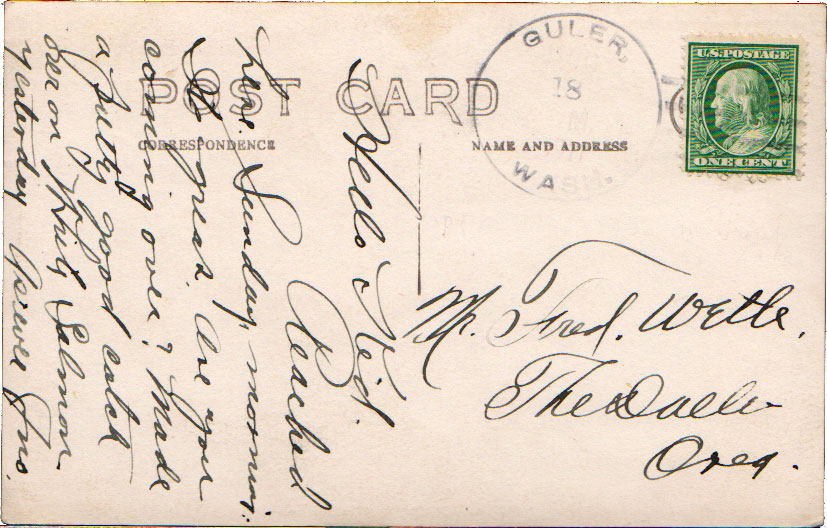 POST CARD
CORRESPONDENCE
NAME AND ADDRESS
GULER,
18
WASH.
U.S. POSTAGE
ONE CENT
Hello Kid.
Reached
here Sunday morning.
It's great. Are you
coming over? Made
a pretty good catch
over on White Salmon
yesterday
Jno.
Mr. Fred. Wette.
The Dalles
Oreg.